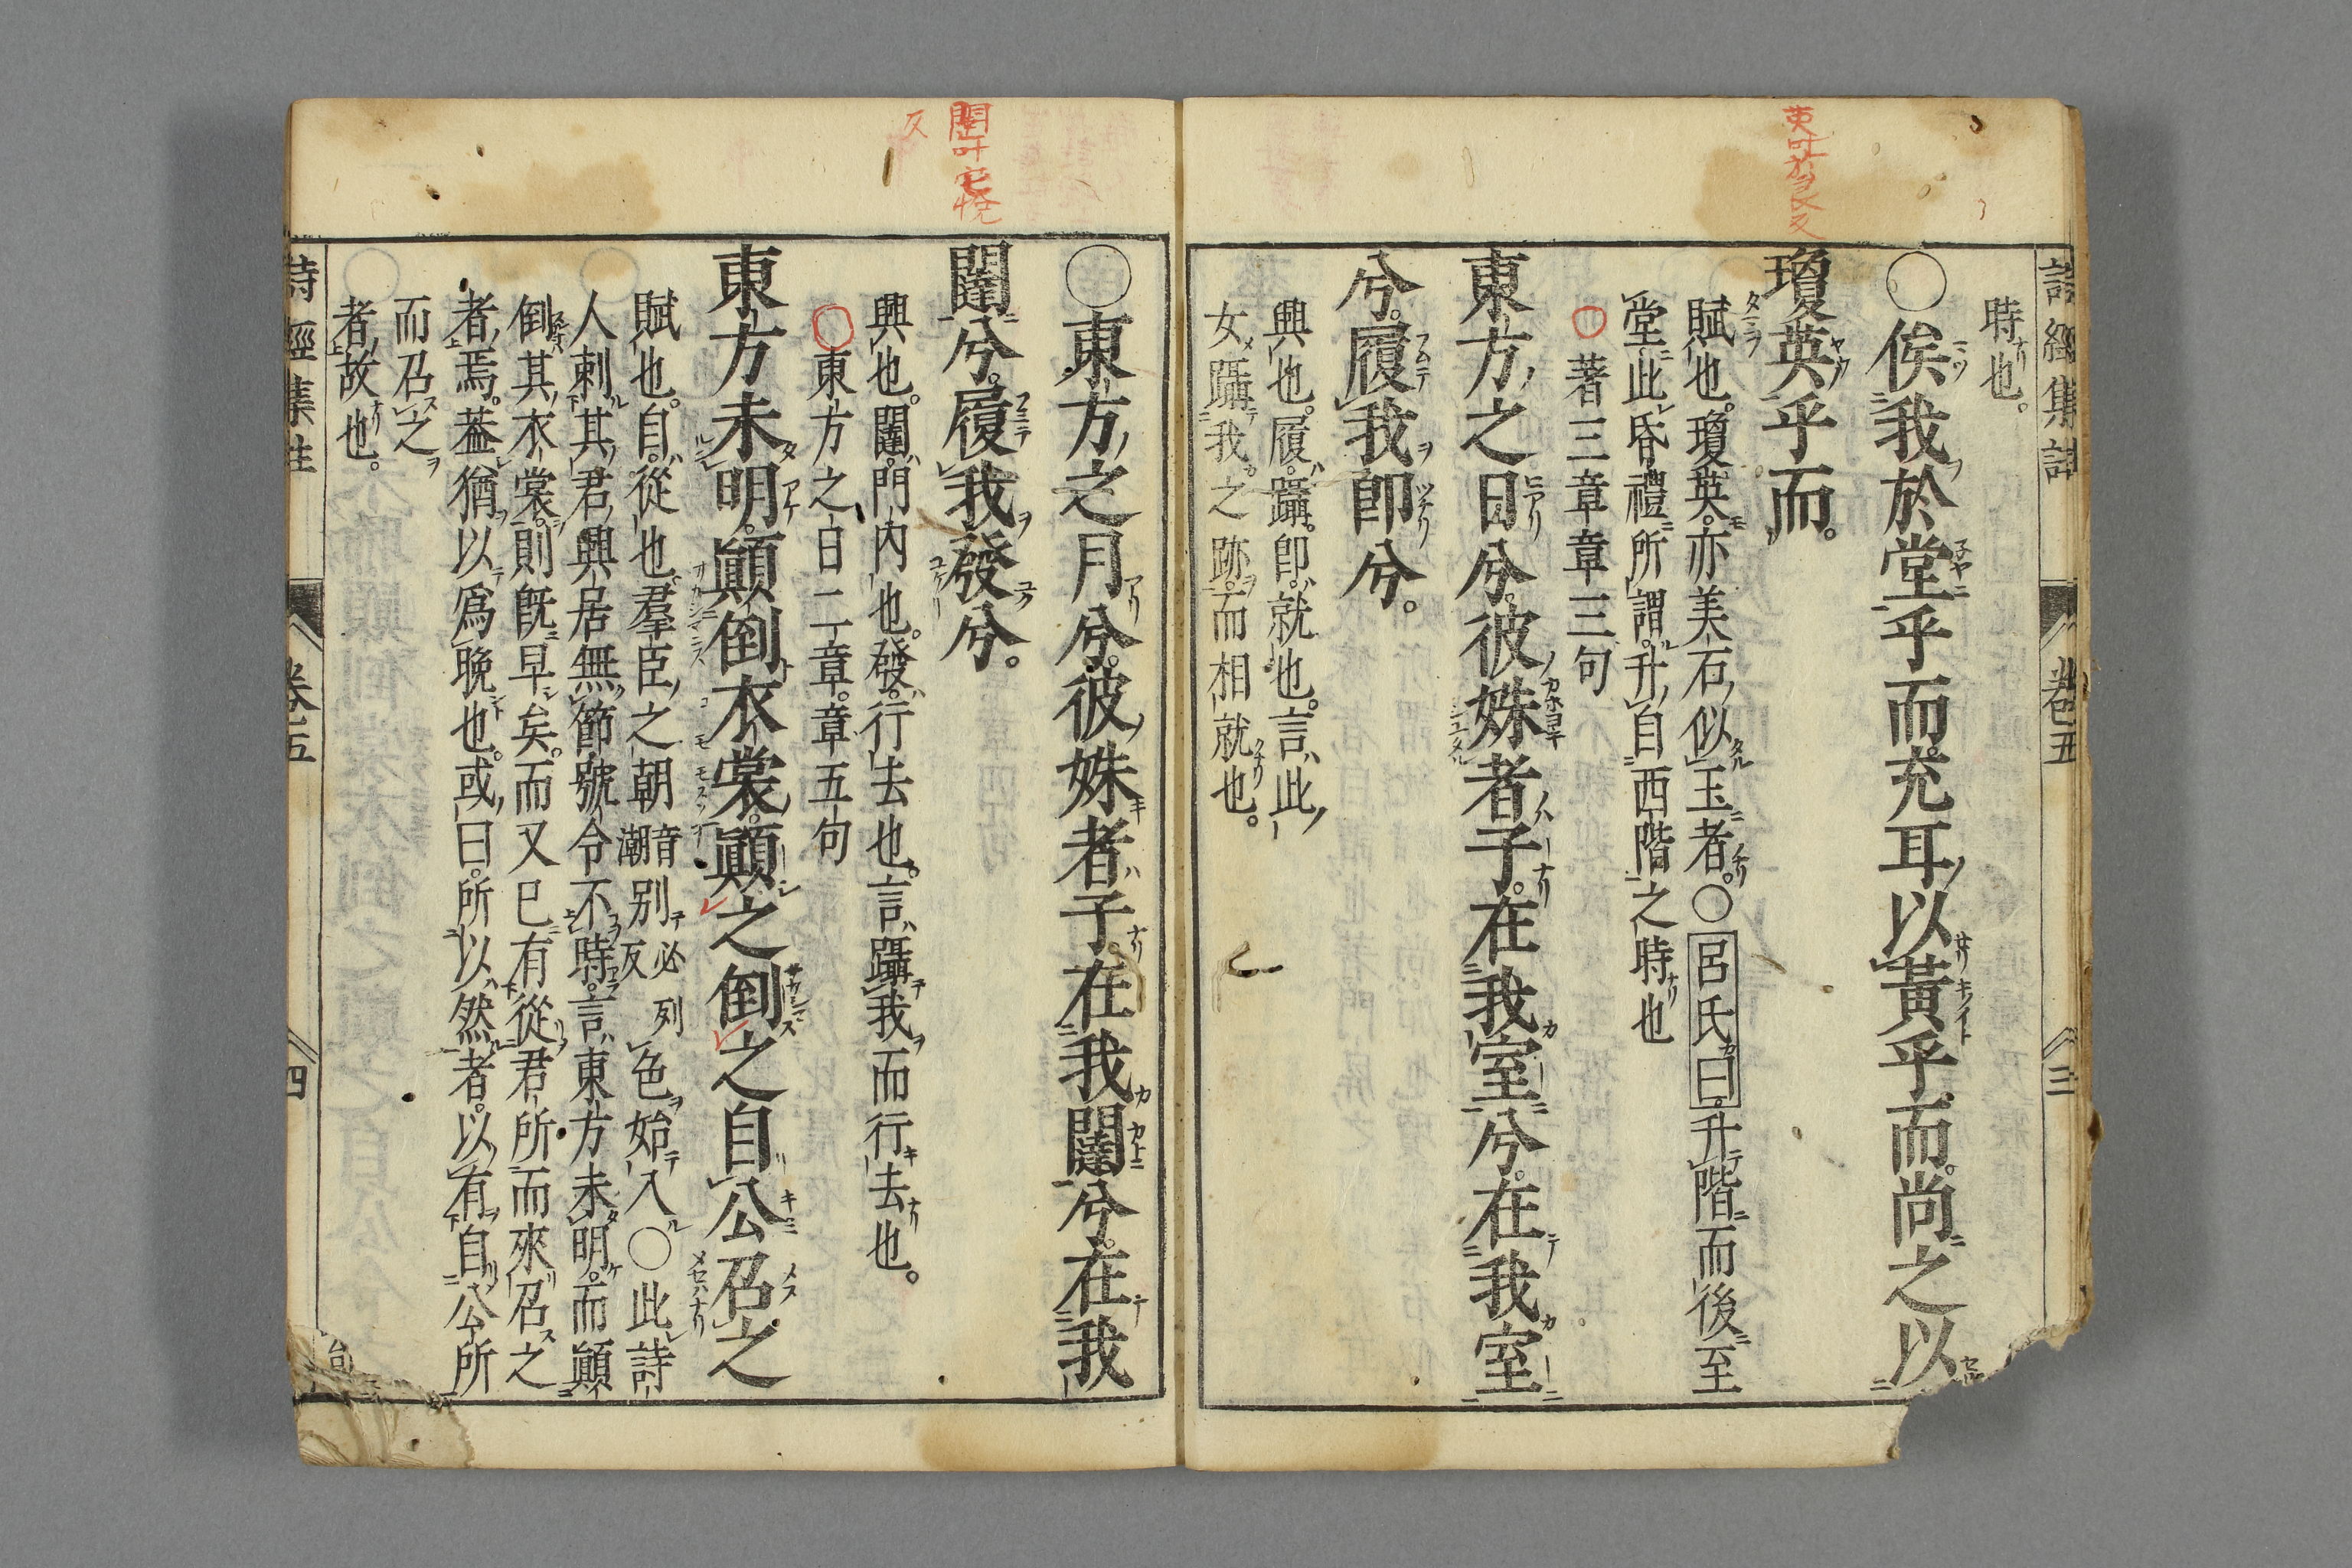 詩經集註 卷五 三
時也。
○俟我於堂乎而充耳以黃乎而尚之以
瓊英乎而。
賦也。瓊英亦美石似玉者。○呂氏曰升階而後至
堂此昏禮所謂升自西階之時也
○著三章章三句
東方之日兮彼姝者子在我室兮在我室
兮履我卽兮。
興也。履躡卽就也。言此
女躡我之跡而相就也。
○東方之月兮彼姝者子在我闥兮在我
闥兮履我發兮。
興也。闥門内也。發行去也。言躡我而行去也。
○東方之日二章章五句
東方未明顚倒衣裳顚之倒之自公召之
賦也。自從也。羣臣之朝音潮別必列反色始入○此詩
人刺其君興居無節號令不時言東方未明而顚
倒其衣裳則旣早矣而又巳有從君所而來召之
者焉蓋猶以爲晚也。或曰所以然者以有自公所
而召之
者故也。
詩經集註 卷五 四